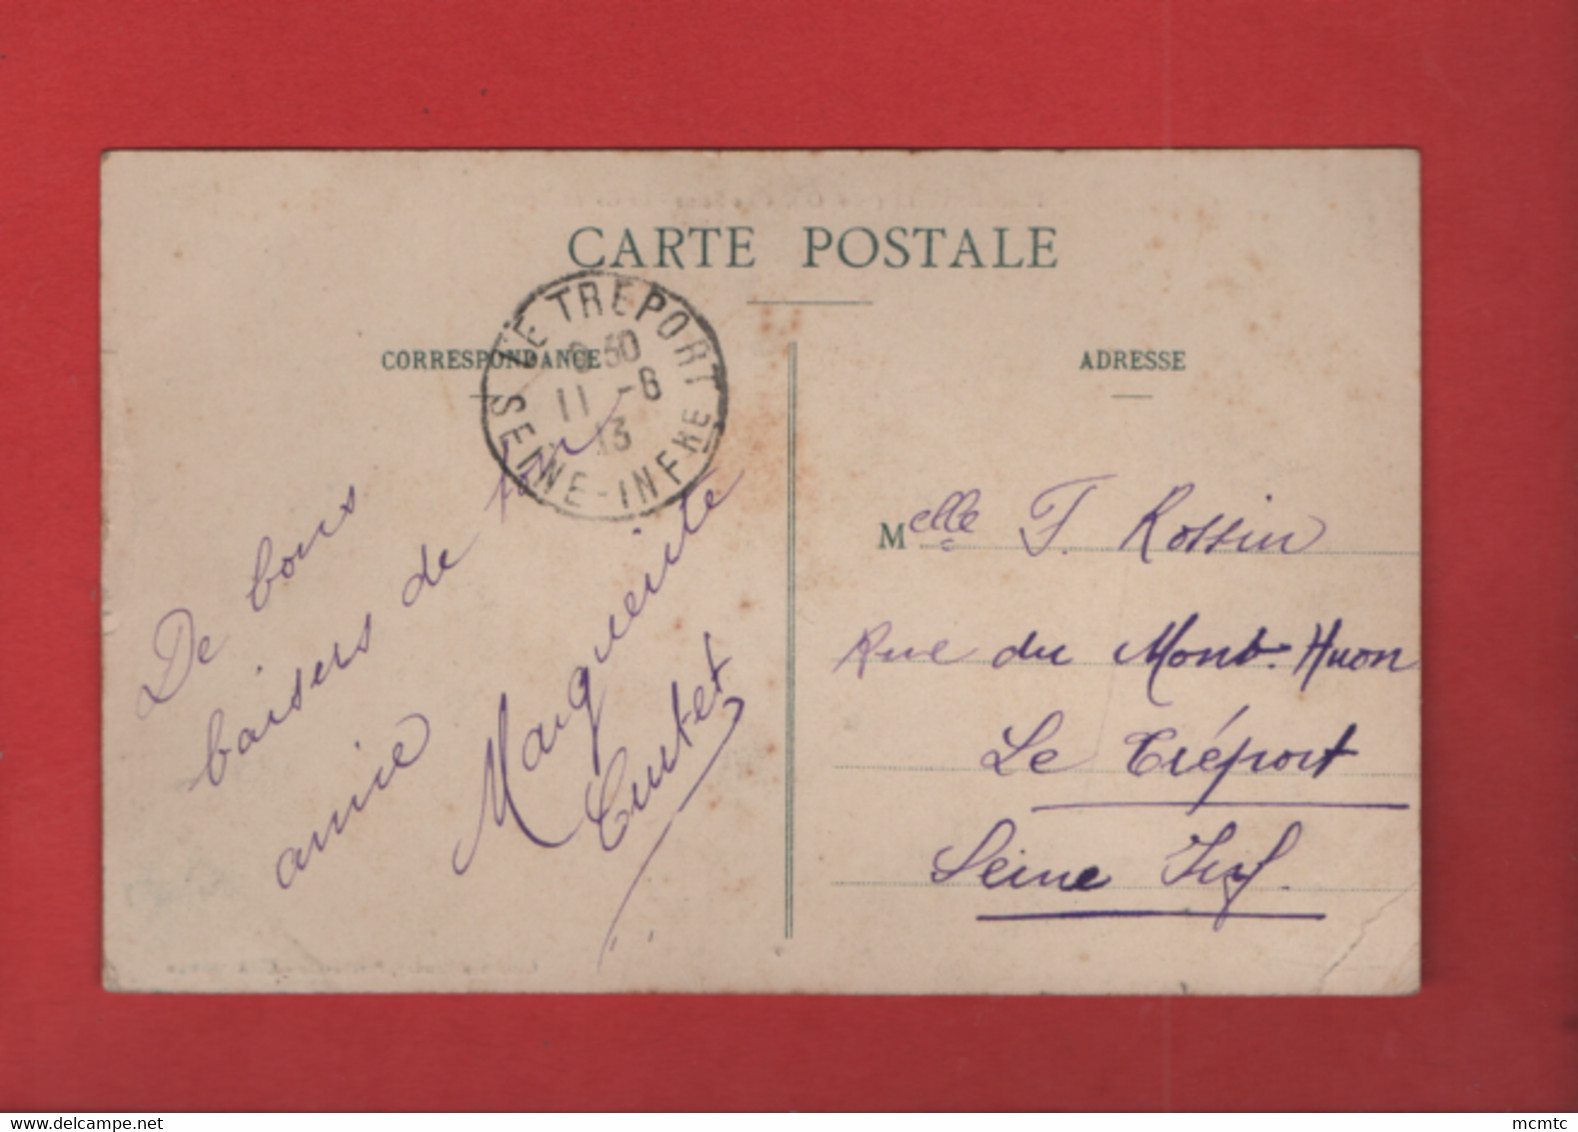 CARTE POSTALE
CORRESPONDANCE
ADRESSE
LE TREPORT
SEINE-INFRE
11 -6
13
De bons
baisers de ton
amie
Marguerite
Melle F. Rossin
Rue du Mont-Huon
Le Tréport
Seine Inf.
www.delcampe.net
mcmtc